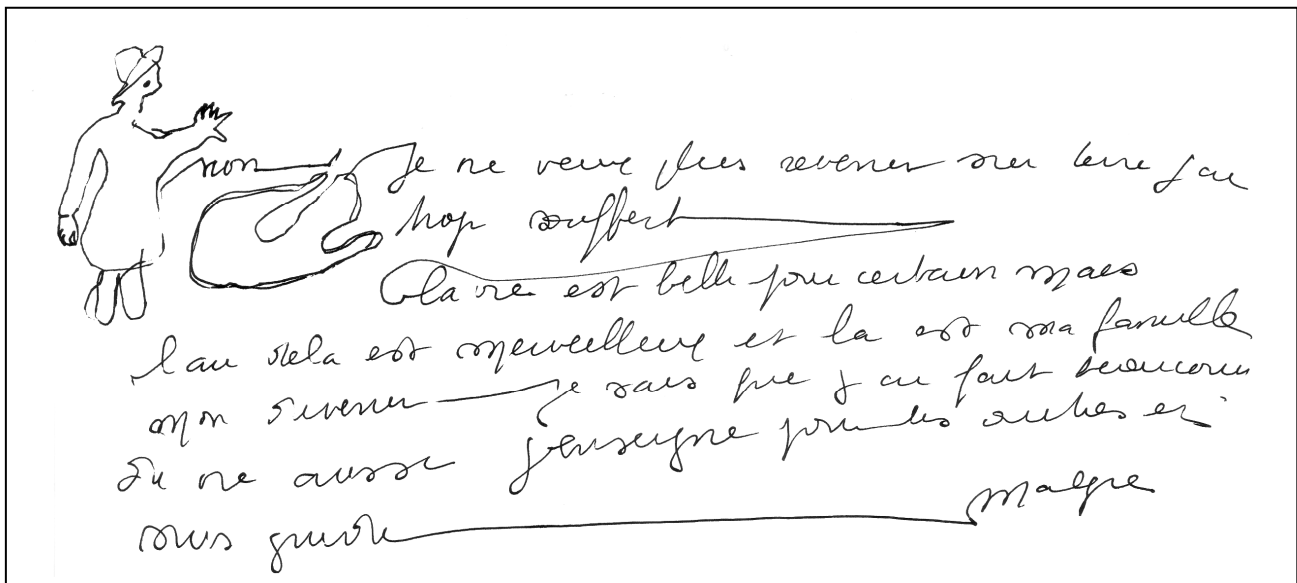 non je ne veux plus revenir sur terre j ai
trop souffert
la vie est belle pour certain mais
l au dela est merveilleux et la est ma famille
mon devenir je sais que j ai fait beaucoup
vie aussi j enseigne pour les autres et
suis guide malgre